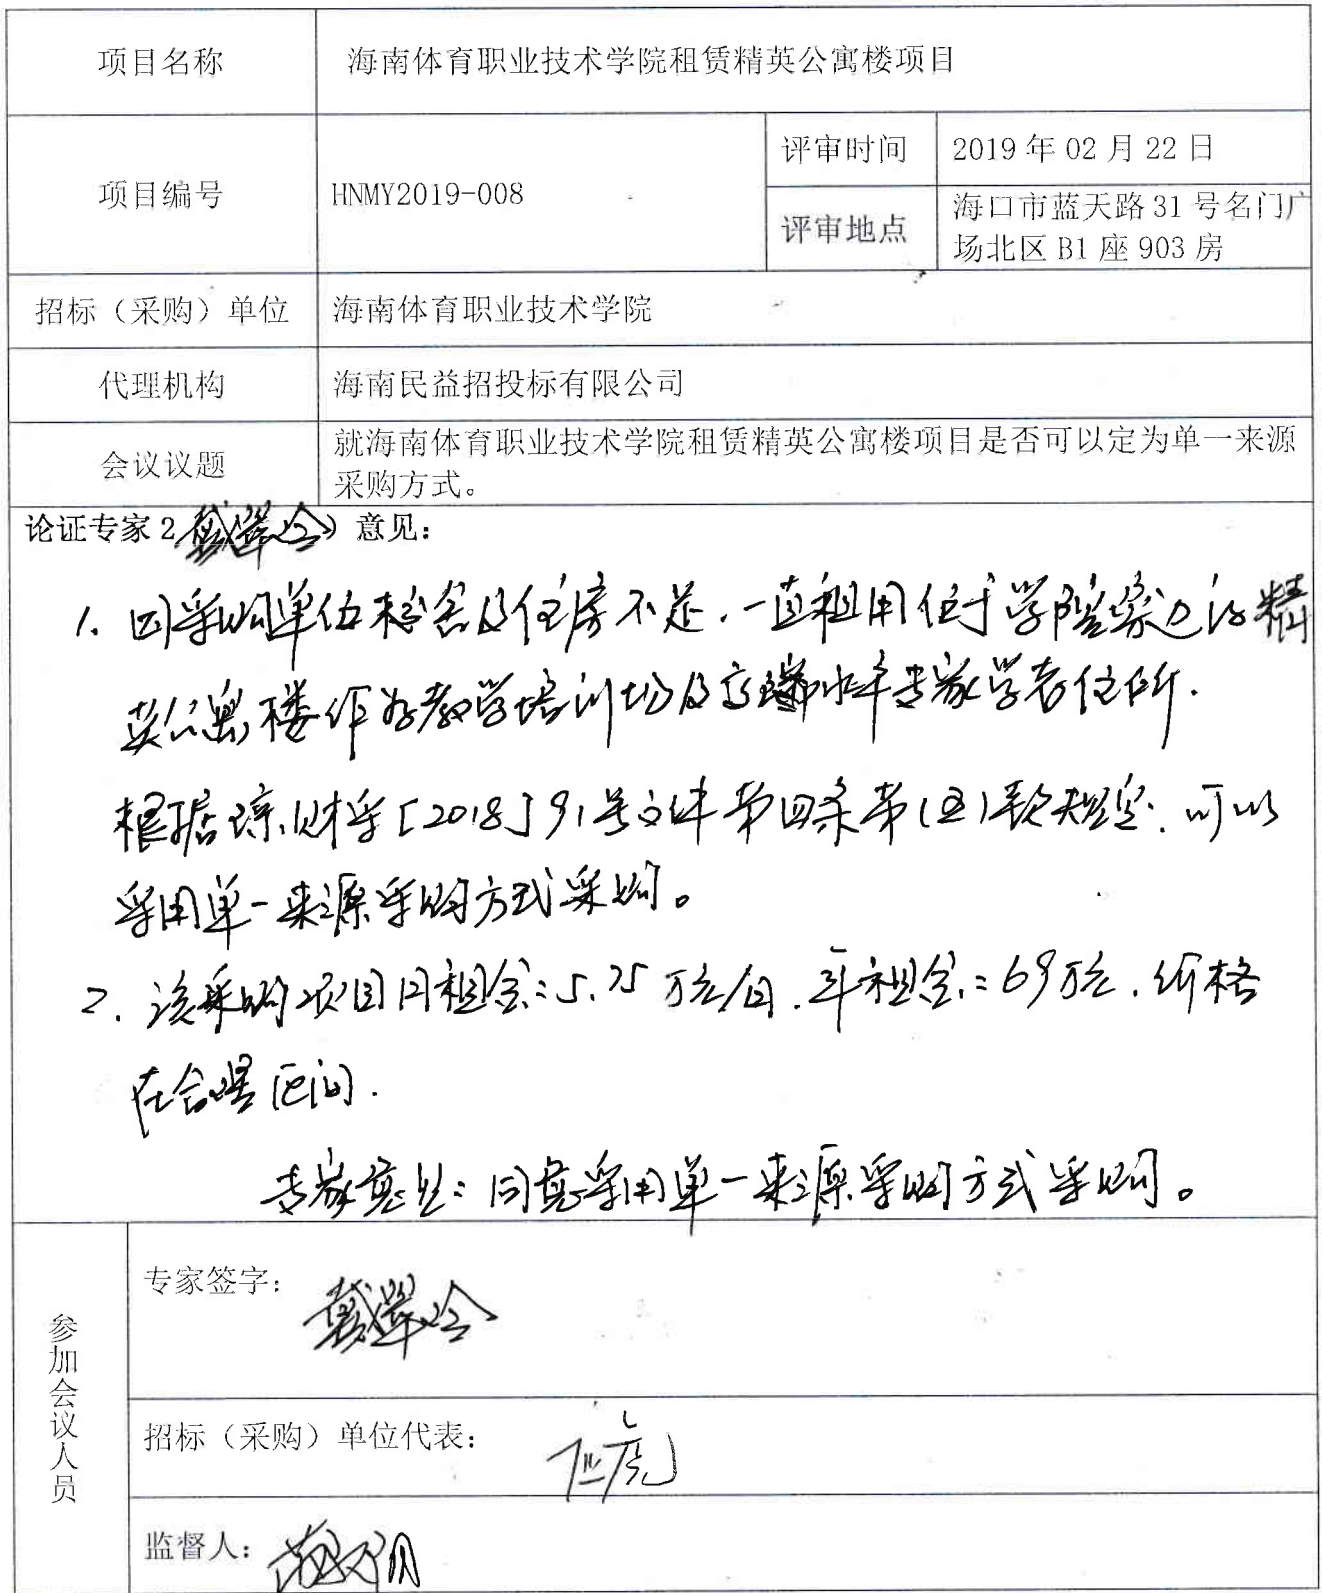 项目名称
海南体育职业技术学院租赁精英公寓楼项目
项目编号
HNMY2019-008
评审时间
2019 年 02 月 22 日
评审地点
海口市蓝天路 31 号名门广
场北区 B1 座 903 房
招标（采购）单位
海南体育职业技术学院
代理机构
海南民益招投标有限公司
会议议题
就海南体育职业技术学院租赁精英公寓楼项目是否可以定为单一来源
采购方式。
论证专家 2 ）意见：
1. 因采购单位校舍及住房不足．一直租用位于学院旁边的精
英公寓楼作为教学培训场及高端水平专家学者住所．
根据琼财采[2018]91号文件第四条第(五)款规定．可以
采用单一来源采购方式采购。
2. 该采购项目月租金：5.75万元/月．年租金：69万元．价格
在合理区间．
专家意见：同意采用单一来源采购方式采购。
参加会议人员
专家签字：
招标（采购）单位代表：
监督人：